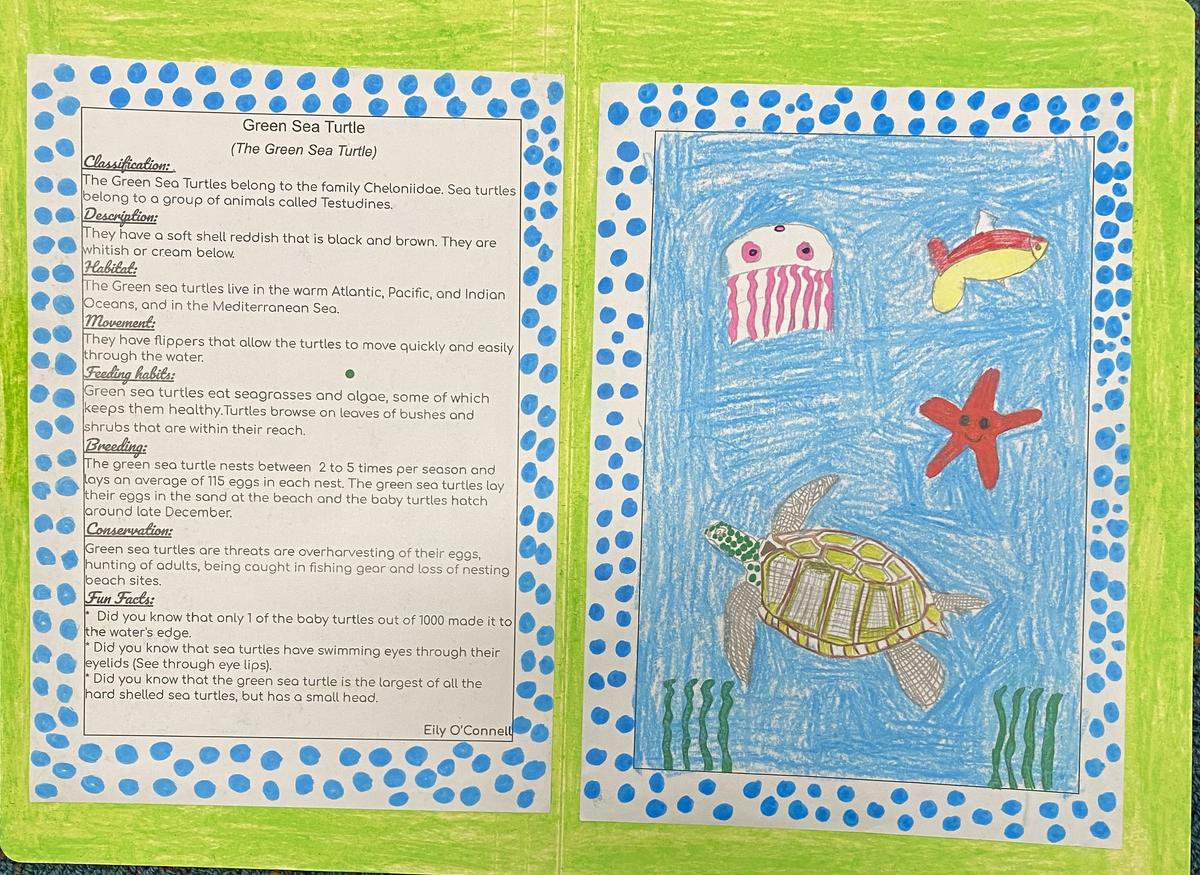 Green Sea Turtle
(The Green Sea Turtle)
Classification:
The Green Sea Turtles belong to the family Cheloniidae. Sea turtles
belong to a group of animals called Testudines.
Description:
They have a soft shell reddish that is black and brown. They are
whitish or cream below.
Habitat:
The Green sea turtles live in the warm Atlantic, Pacific, and Indian
Oceans, and in the Mediterranean Sea.
Movement:
They have flippers that allow the turtles to move quickly and easily
through the water.
Feeding habits:
Green sea turtles eat seagrasses and algae, some of which
keeps them healthy.Turtles browse on leaves of bushes and
shrubs that are within their reach.
Breeding:
The green sea turtle nests between 2 to 5 times per season and
lays an average of 115 eggs in each nest. The green sea turtles lay
their eggs in the sand at the beach and the baby turtles hatch
around late December.
Conservation:
Green sea turtles are threats are overharvesting of their eggs,
hunting of adults, being caught in fishing gear and loss of nesting
beach sites.
Fun Facts:
* Did you know that only 1 of the baby turtles out of 1000 made it to
the water's edge.
* Did you know that sea turtles have swimming eyes through their
eyelids (See through eye lips).
* Did you know that the green sea turtle is the largest of all the
hard shelled sea turtles, but has a small head.
Eily O'Connell